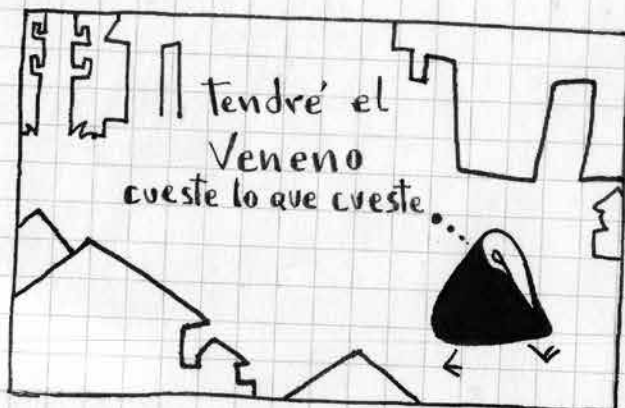 tendré el
Veneno
cueste lo que cueste